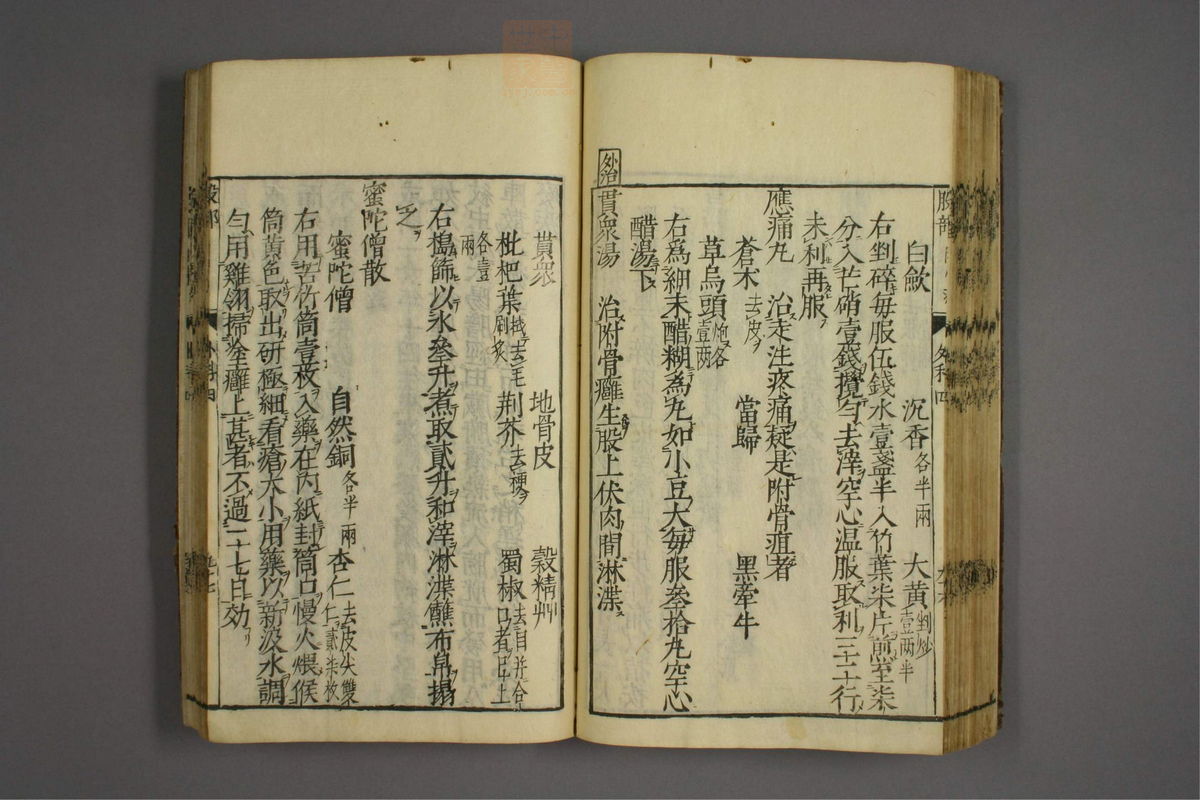 白歛 沉香各半兩 大黃剉炒壹兩半
右剉碎每服伍錢水壹盞半入竹葉柒片煎至柒
分入芒硝壹錢攪勻去滓空心温服取利三二十行
未利再服
應痛丸 治走注疼痛疑是附骨疽者
蒼朮去皮 當歸 黑牽牛
草烏頭炮各壹两
右爲細末醋糊為丸如小豆大每服叁拾丸空心
醋湯下
外治
貫衆湯 治附骨癰生股上伏肉間淋渫
貫衆 地骨皮 穀精艸
枇杷葉拭去毛刷炙 荆芥去梗 蜀椒去目并合口者已上
各壹兩
右搗篩以水叁升煮取貳升和滓淋渫蘸布帛搨
之
蜜陀僧散
蜜陀僧 自然銅各半兩 杏仁去皮尖雙仁貳柒枚
右用苦竹筒壹枚入藥在内紙封筒口慢火煨候
筒黃色取出研極細看瘡大小用藥以新汲水調
勻用雞翎掃塗癰上甚者不過二十七日効